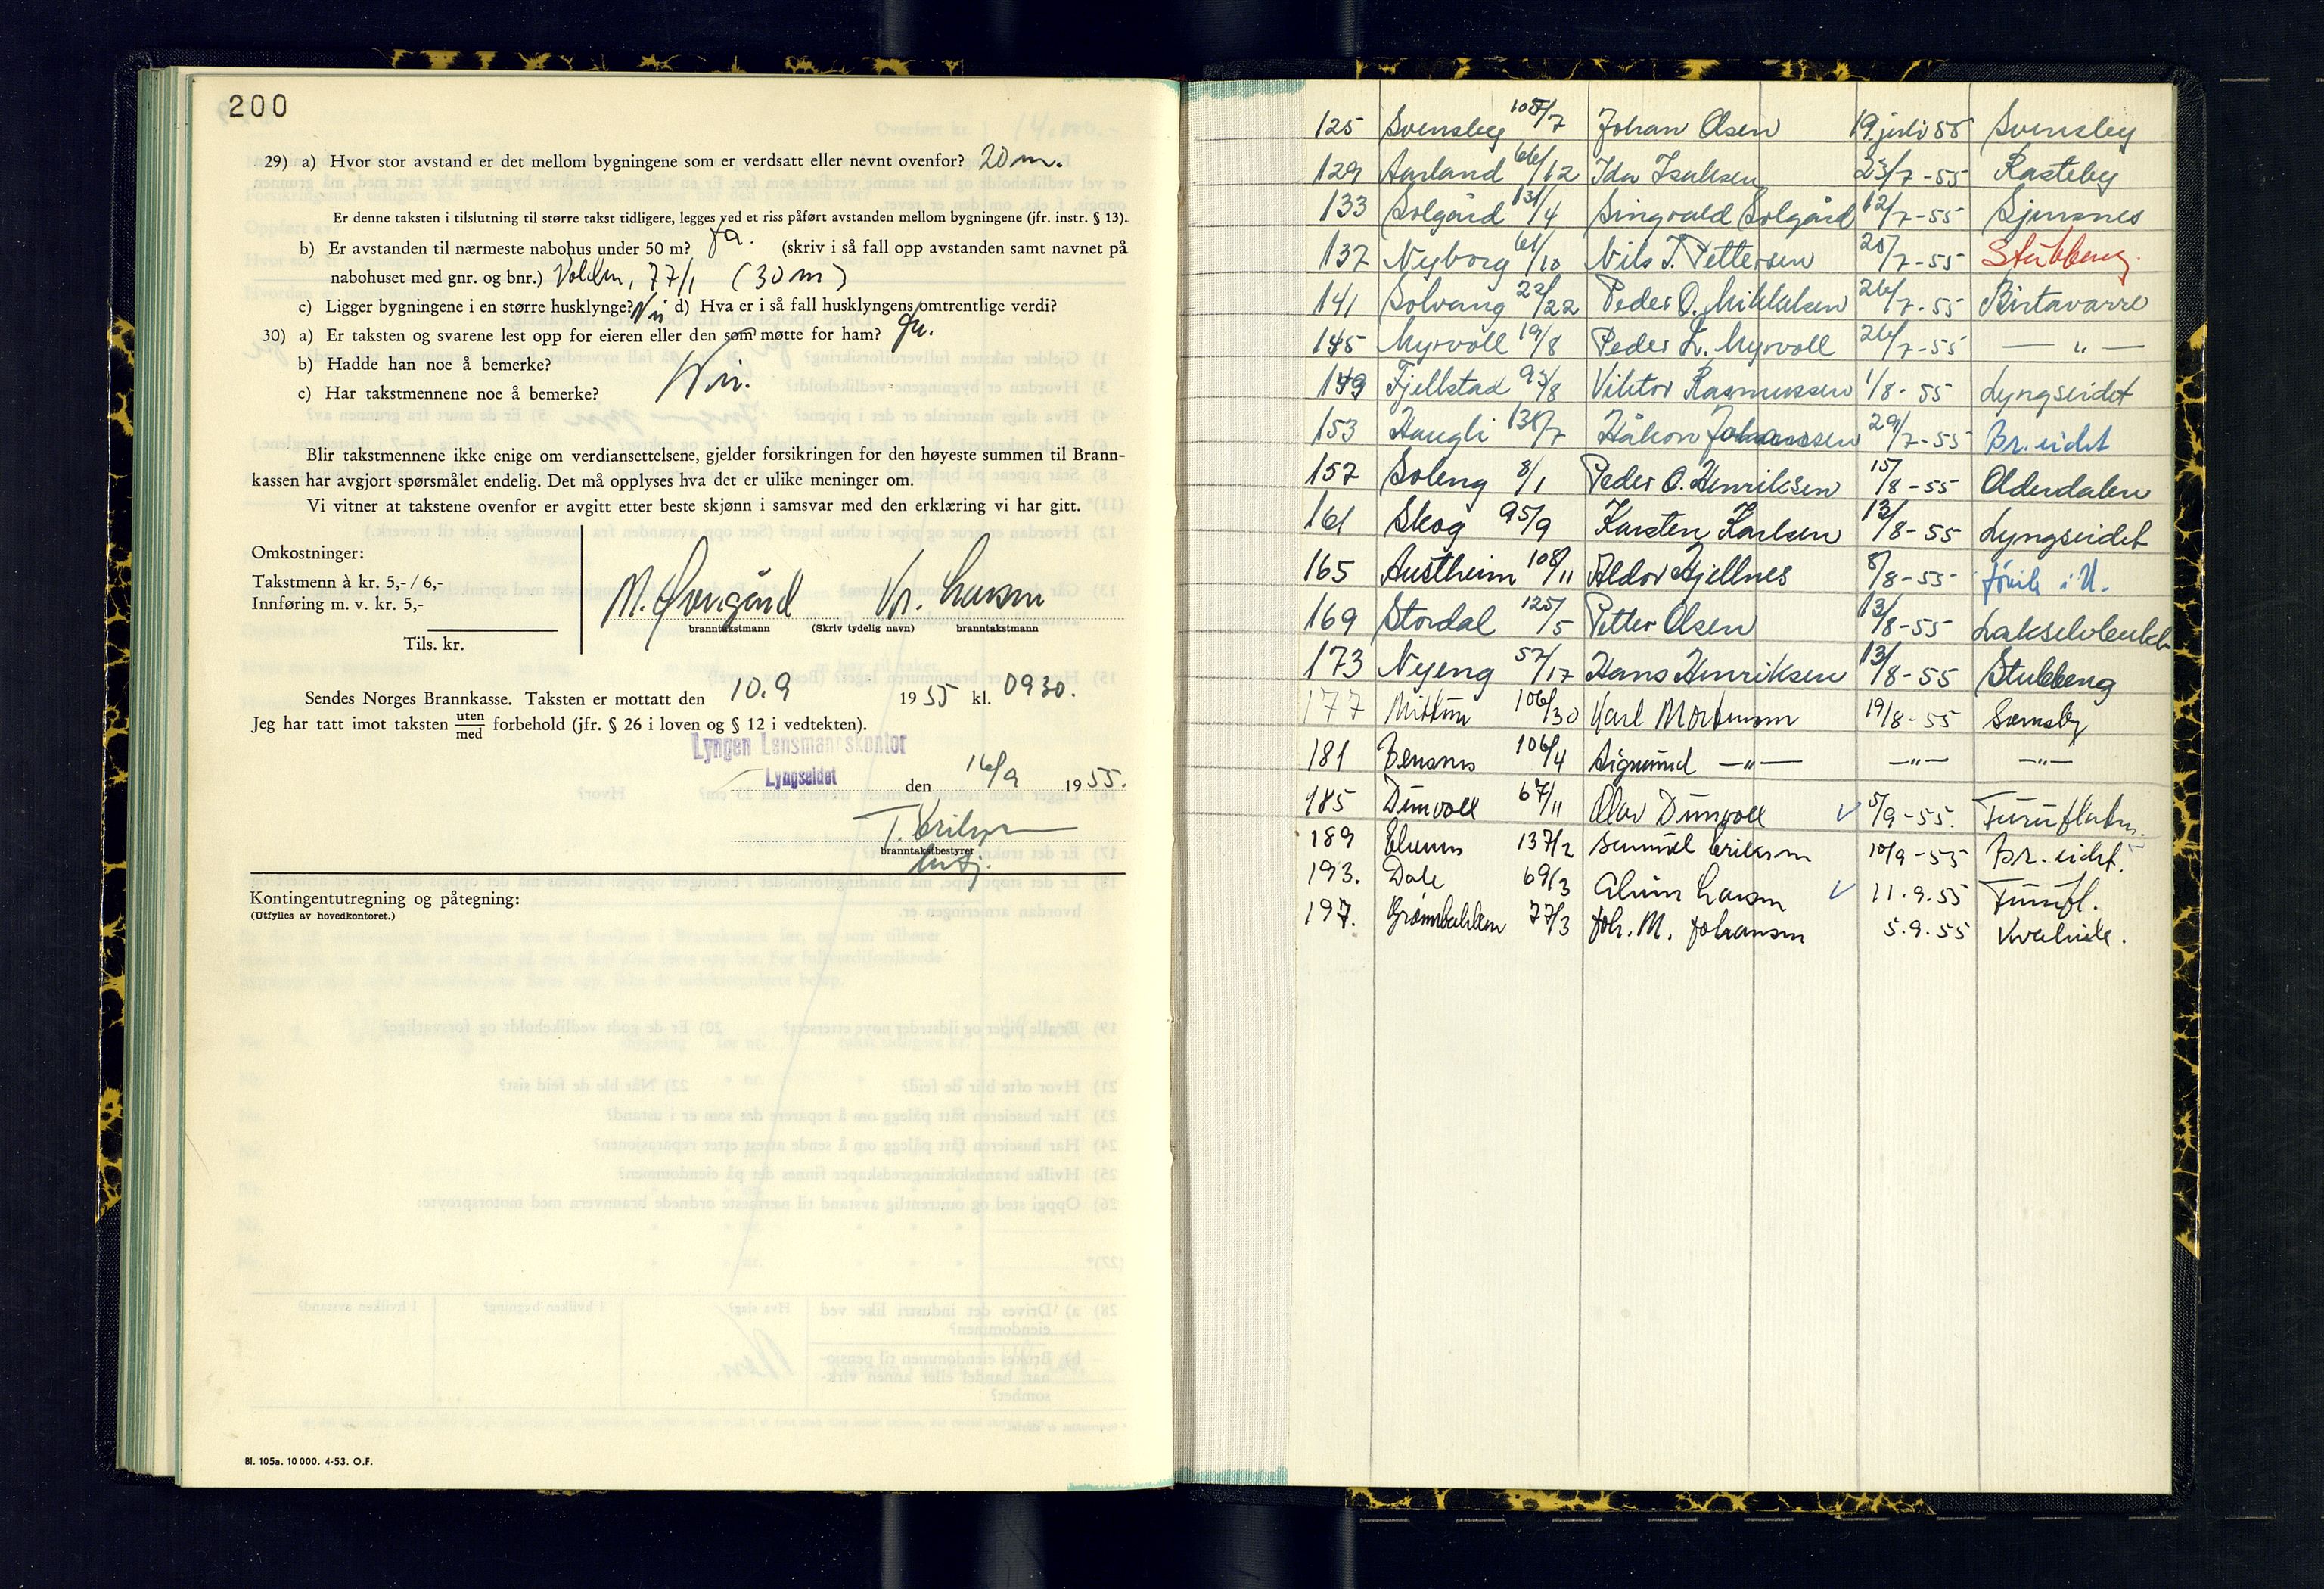 200
29) a) Hvor stor avstand er det mellom bygningene som er verdsatt eller nevnt ovenfor? 20 m.
Er denne taksten i tilslutning til større takst tidligere, legges ved et riss påført avstanden mellom bygningene (jfr. instr. § 13).
b) Er avstanden til nærmeste nabohus under 50 m? Ja. (skriv i så fall opp avstanden samt navnet på
nabohuset med gnr. og bnr.) 77/1 (30 m)
c) Ligger bygningene i en større husklynge? Nei d) Hva er i så fall husklyngens omtrentlige verdi?
30) a) Er taksten og svarene lest opp for eieren eller den som møtte for ham? Ja.
b) Hadde han noe å bemerke?
c) Har takstmennene noe å bemerke? Nei.
Blir takstmennene ikke enige om verdiansettelsene, gjelder forsikringen for den høyeste summen til Brann-
kassen har avgjort spørsmålet endelig. Det må opplyses hva det er ulike meninger om.
Vi vitner at takstene ovenfor er avgitt etter beste skjønn i samsvar med den erklæring vi har gitt.
Omkostninger:
Takstmenn à kr. 5,- / 6,-
Innføring m. v. kr. 5,-
Tils. kr.
M. Kr. Larsen
branntakstmann (Skriv tydelig navn) branntakstmann
Sendes Norges Brannkasse. Taksten er mottatt den 10.9 1955 kl. 0930.
Jeg har tatt imot taksten uten/med forbehold (jfr. § 26 i loven og § 12 i vedtekten).
Lyngen Lensmannskontor
Lyngseidet den 16/9 1955.
branntakstbestyrer
Kontingentutregning og påtegning:
(Utfylles av hovedkontoret.)
Bl. 105a. 10 000. 4-53. O.F.
125 Svensby 108/7 Johan Olsen 19. juli 55 Svensby
129 Aarland 66/12 Ida Isaksen 23/7-55 Rasteby
133 Solgård 131/4 Singvald Solgård 12/7-55 Sjursnes
137 Nyborg 61/10 Nils J. Pettersen 20/7-55 Stubbeng.
141 Solvang 22/22 Peder O. Mikkelsen 26/7-55 Birtavarre
145 Myrvoll 19/8 Peder L. Myrvoll 26/7-55 — " —
149 Fjellstad 93/8 Viktor Rasmussen 1/8-55 Lyngseidet
153 Haugli 138/7 Håkon Johanssen 29/7-55 Br. eidet
157 Soleng 8/1 Peder O. Henriksen 15/8-55 Olderdalen
161 Skog 95/9 Karsten Karlsen 13/8-55 Lyngseidet
165 Austheim 108/11 Aldor Kjellnes 8/8-55 Jövik i U.
169 Stordal 125/5 Petter Olsen 13/8-55
173 Nyeng 57/17 Hans Henriksen 13/8-55 Stubbeng
177 106/30 Karl Mortensen 19/8-55 Svensby
181 Bensnes 106/4 Sigmund — " — — " — — " —
185 Dunvoll 67/11 Olav Dunvoll 5/9-55. Furuflaten.
189 Elvenes 137/2 Samuel Eriksen 10/9-55 Br. eidet.
193. Dale 69/3 Larsen 11.9.55 Furufl.
197. 77/3 Joh. M. Johansen 5.9.55 Kvalvik.